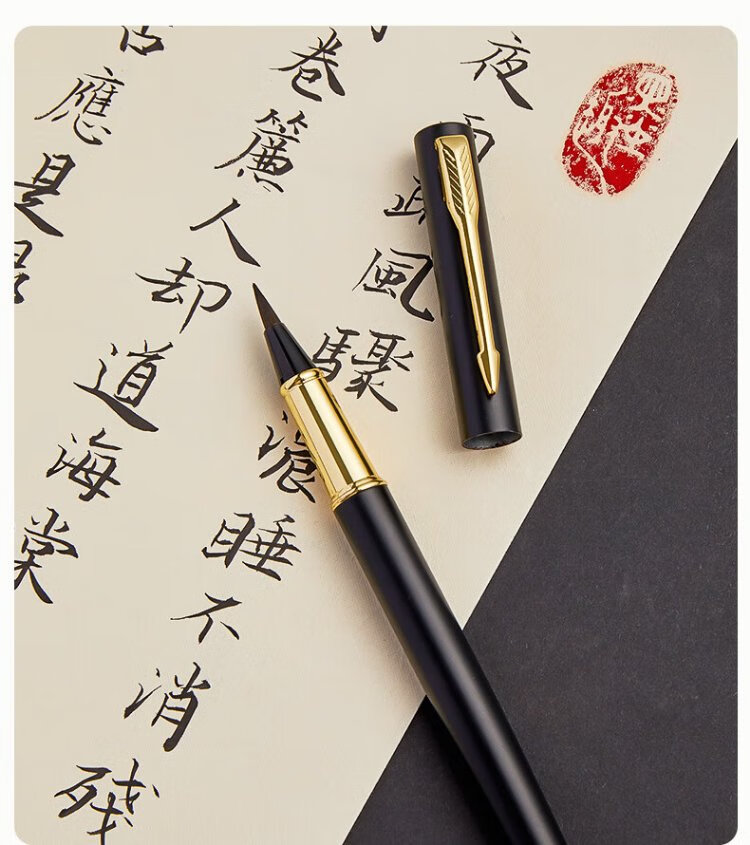 夜雨疏風驟濃睡不消殘
卷簾人却道海棠
否應是